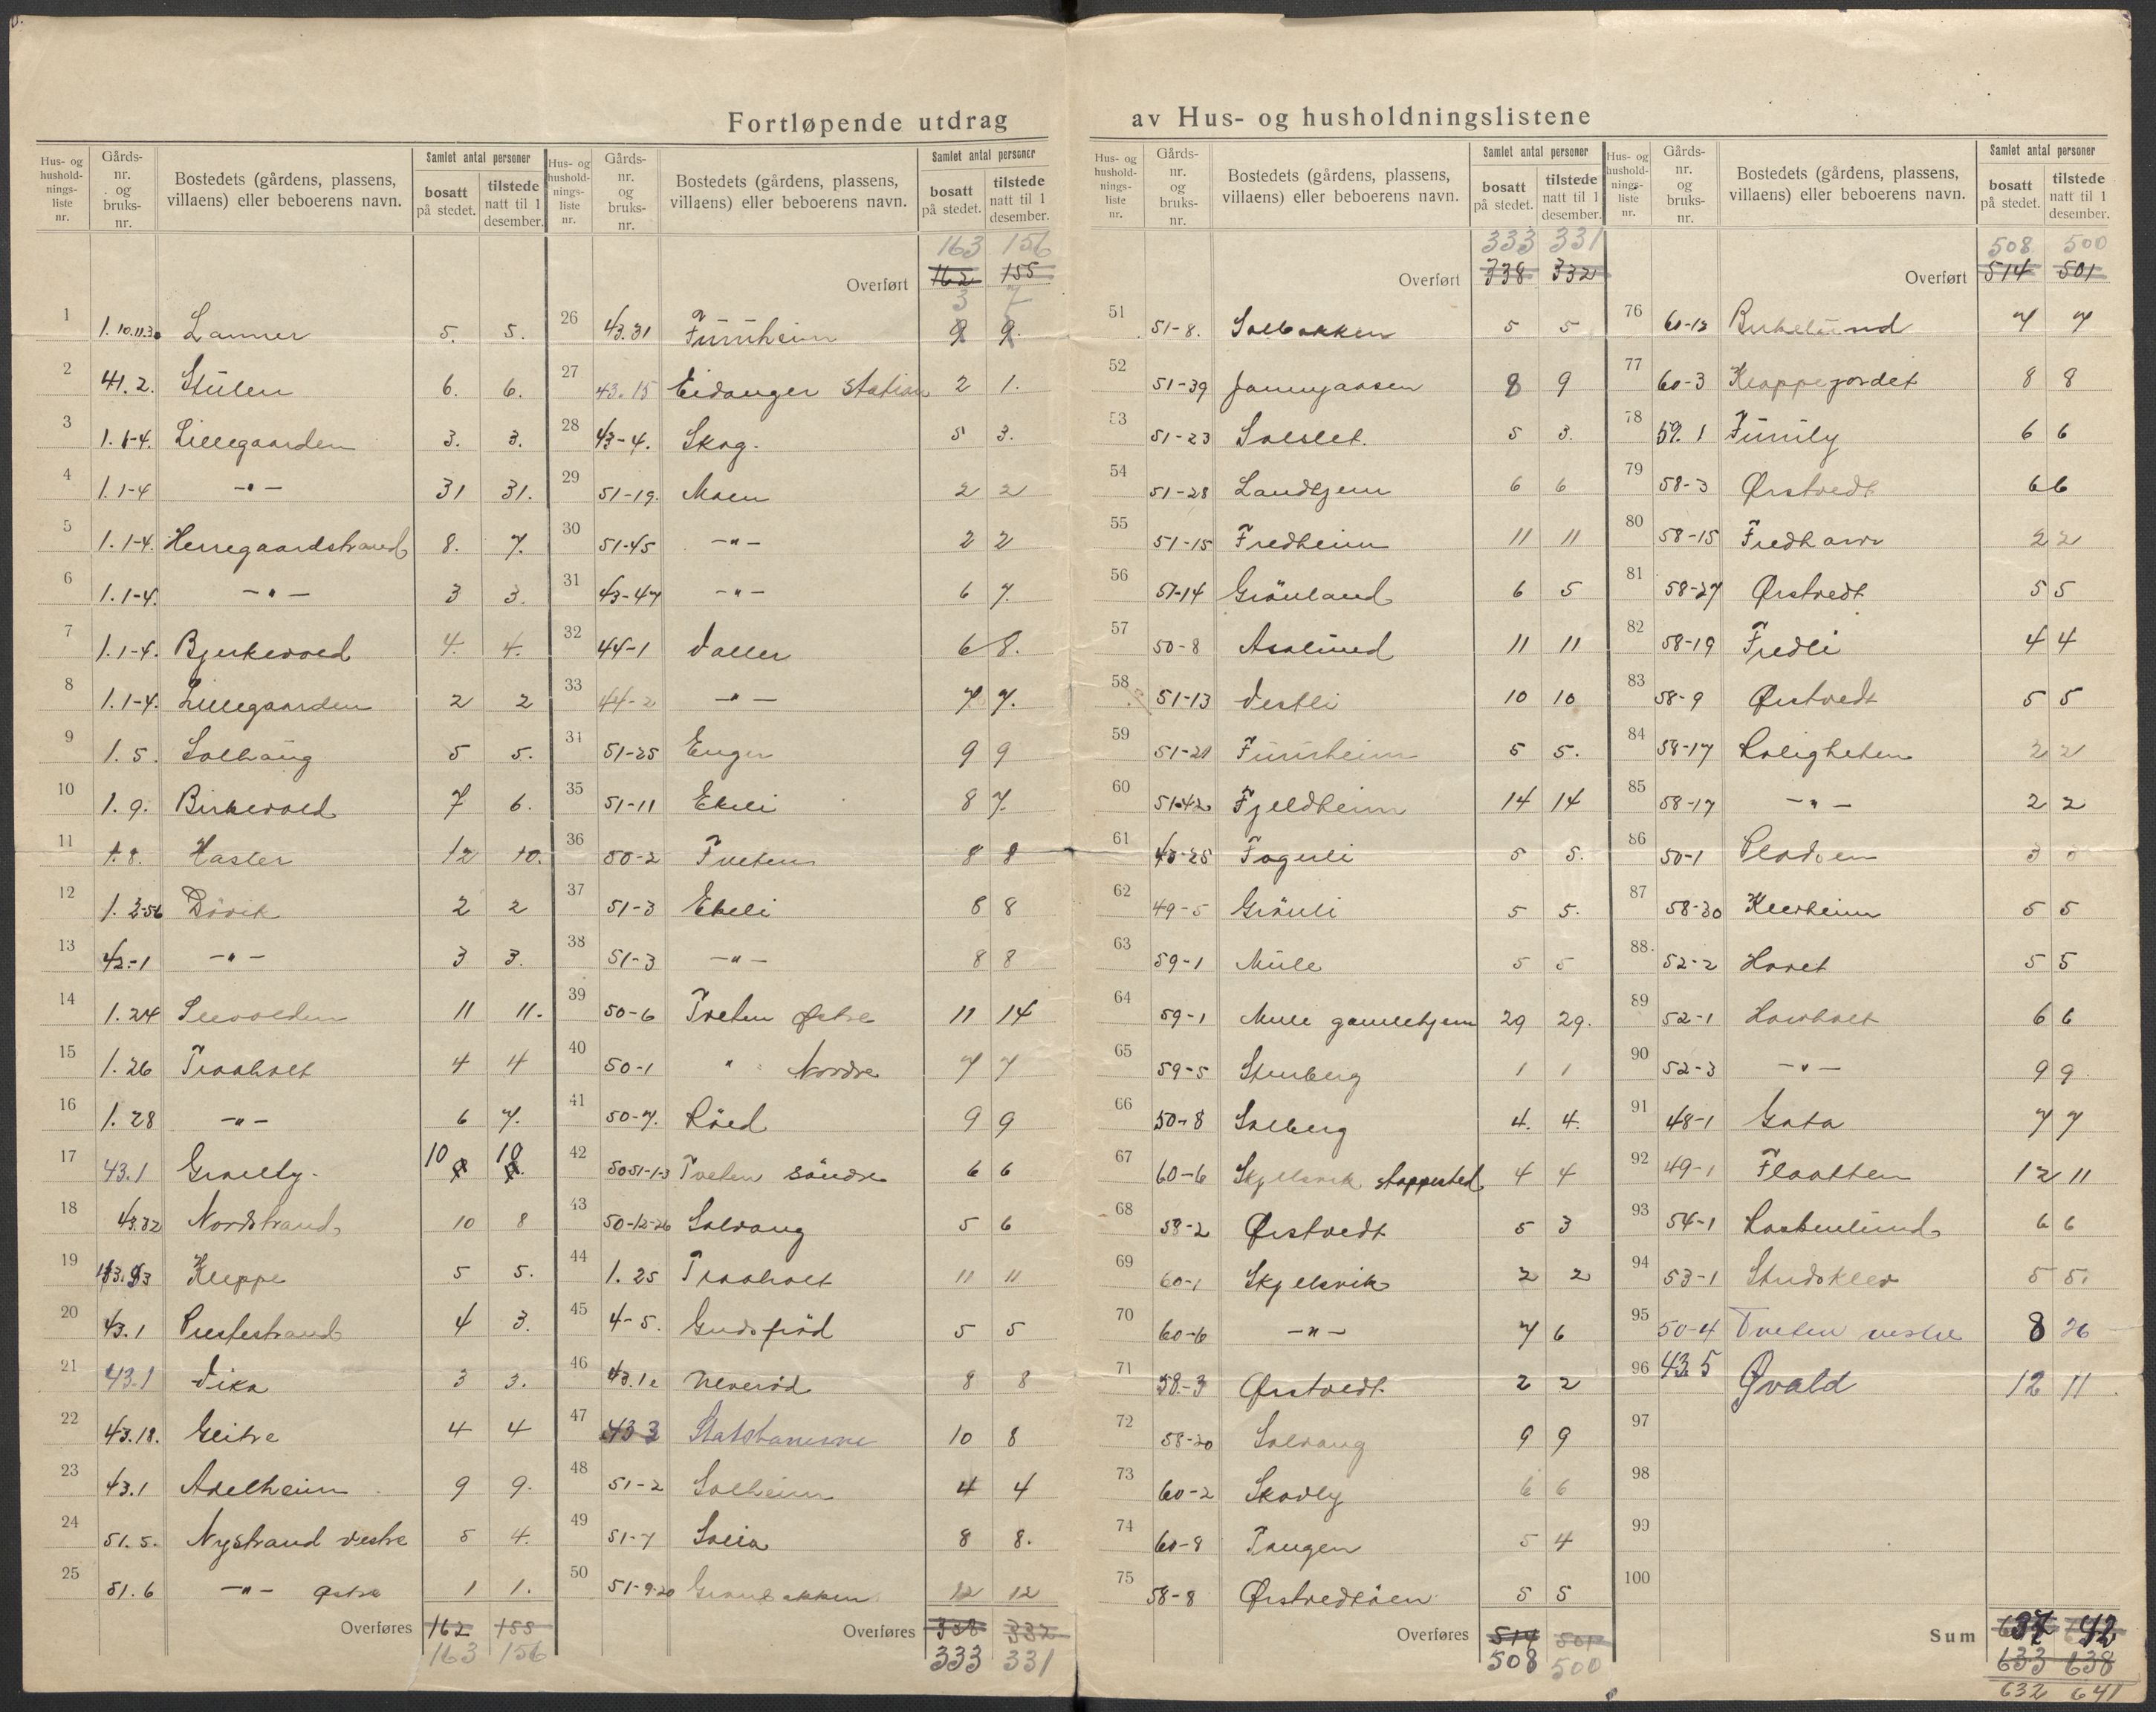 Fortløpende utdrag av Hus- og husholdningslistene
Hus- og husholdnings-liste nr. | Gårds-nr. og bruks-nr. | Bostedets (gårdens, plassens, villaens) eller beboerens navn. | Samlet antal personer: bosatt på stedet. | tilstede natt til 1 desember.
1 1.10.11.30 Lanner 5. 5.
2 41.2. Stulen 6. 6.
3 1.1-4. Lillegaarden 3. 3.
4 1.1-4 -"- 31 31.
5 1.1-4. Herregaardstrand 8. 7.
6 1.1-4. -"- 3 3.
7 1.1-4. Bjerkevold 4. 4.
8 1.1-4. Lillegaarden 2 2
9 1.5. Solhaug 5 5.
10 1.9. Birkevold 7 6.
11 1.8. Hasler 12 10.
12 1.2-56 Dövik 2 2
13 42-1 -"- 3 3.
14 1.24 11 11.
15 1.26 Traaholt 4 4
16 1.28 -"- 6 7.
17 43.1 10 10
18 43.32 Nordstrand 10 8
19 Kleppe 5 5.
20 43.1 Prestestrand 4 3.
21 43.1 Vika 3 3.
22 43.18. Gleitre 4 4
23 43.1 Adelheim 9 9.
24 51.5. Nystrand vestre 5 4.
25 51.6 -"- østre 1 1.
Overføres 162 155
163 156
Hus- og husholdnings-liste nr. | Gårds-nr. og bruks-nr. | Bostedets (gårdens, plassens, villaens) eller beboerens navn. | Samlet antal personer: bosatt på stedet. | tilstede natt til 1 desember.
163 156
Overført 162 155
3 7
26 43.31 Furuheim 9 9.
27 43.15 Eidanger station 2 1.
28 43-4. Skog. 5 3.
29 51-19. Moen 2 2
30 51-45 -"- 2 2
31 43-47 -"- 6 7.
32 44-1 Valler 6 8.
33 44-2 -"- 7 7.
34 51-25 Enger 9 9
35 51-11 Ekeli 8 7.
36 50-2 Tveten 8 8
37 51-3 Ekeli 8 8
38 51-3 -"- 8 8
39 50-6 Tveten Østre 11 14
40 50-1 " Nordre 7 7
41 50-7. Röed 9 9
42 50-51-1-3 Tveten söndre 6 6
43 50-12-26 Solvang 5 6
44 1.25 Traaholt 11 11
45 4-5. Gudsfröd 5 5
46 Neveröd 8 8
47 43 3 Statsbanerne 10 8
48 51-2 Solheim 4 4
49 51-7 Solia 8 8.
50 51-9-20 Granbakken 12 12
Overføres 338 332
333 331
Hus- og husholdnings-liste nr. | Gårds-nr. og bruks-nr. | Bostedets (gårdens, plassens, villaens) eller beboerens navn. | Samlet antal personer: bosatt på stedet. | tilstede natt til 1 desember.
333 331
Overført 338 332
51 51-8. Solbakken 5 5
52 51-39 8 9
53 51-23 Solslet. 5 3.
54 51-28 Landhjem 6 6
55 51-15 Fredheim 11 11
56 51-14 Grönland 6 5
57 50-8 Asalund 11 11
58 51-13 Vestli 10 10
59 51-21 Furuheim 5 5.
60 51-42 Fjeldheim 14 14
61 43-25 Fagerli 5 5.
62 49-5 Grönli 5 5.
63 59-1 Mule 5 5
64 59-1 Mule gamlehjem 29 29.
65 59-5 Stenberg 1 1
66 50-8 Solberg 4. 4.
67 60-6 Skjelsvik stoppested 4 4
68 58-2 Ørstvedt 5 3
69 60-1 Skjelsvik 2 2
70 60-6 -"- 7 6
71 58-3 Ørstvedt 2 2
72 58-20 Solvang 9 9
73 60-2 Skovly 6 6
74 60-8 Tangen 5 4
75 58-8 Ørstvedtöen 5 5
Overføres 514 501
508 500
Hus- og husholdnings-liste nr. | Gårds-nr. og bruks-nr. | Bostedets (gårdens, plassens, villaens) eller beboerens navn. | Samlet antal personer: bosatt på stedet. | tilstede natt til 1 desember.
508 500
Overført 514 501
76 60-12 Birkelund 7 7
77 60-3 Kleppejordet 8 8
78 59.1 Furuly 6 6
79 58-3 Ørstvedt 6 6
80 58-15 2 2
81 58-27 Ørstvedt 5 5
82 58-19 Fredli 4 4
83 58-9 Ørstvedt 5 5
84 58-17 Roligheten 2 2
85 58-17 -"- 2 2
86 50-1 3
87 58-30 5 5
88. 52-2 Hovet 5 5
89 52-1 Hovholt 6 6
90 52-3 -"- 9 9
91 48-1 Gata 7 7
92 49-1 Flaatten 12 11
93 54-1 6 6
94 53-1 5 5.
95 50-4 Tveten vestre 8 26
96 43 5 Øvald 12 11
97
98
99
100
Sum 37 42
633 638
632 641